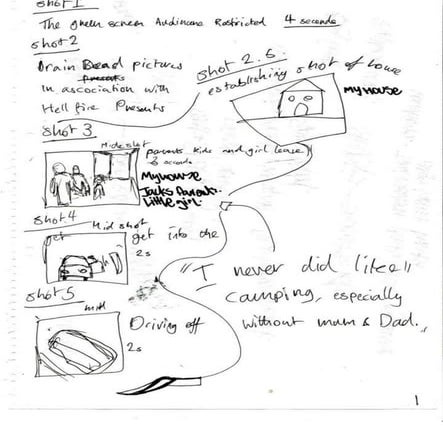 Shot 1
The green screen Audience Restricted 4 seconds
Shot 2
Brain Dead pictures
Presents
In association with
Hellfire Presents
Shot 2.5
establishing shot of house
MY HOUSE
Shot 3
Mid shot
parents kids and girl leave
3 seconds
My house
Jacks Parents.
Little girl.
Shot 4
Mid shot
get into the
2s
Shot 5
mid
Driving off
2s
"I never did like"
camping, especially
without mum & Dad.
1